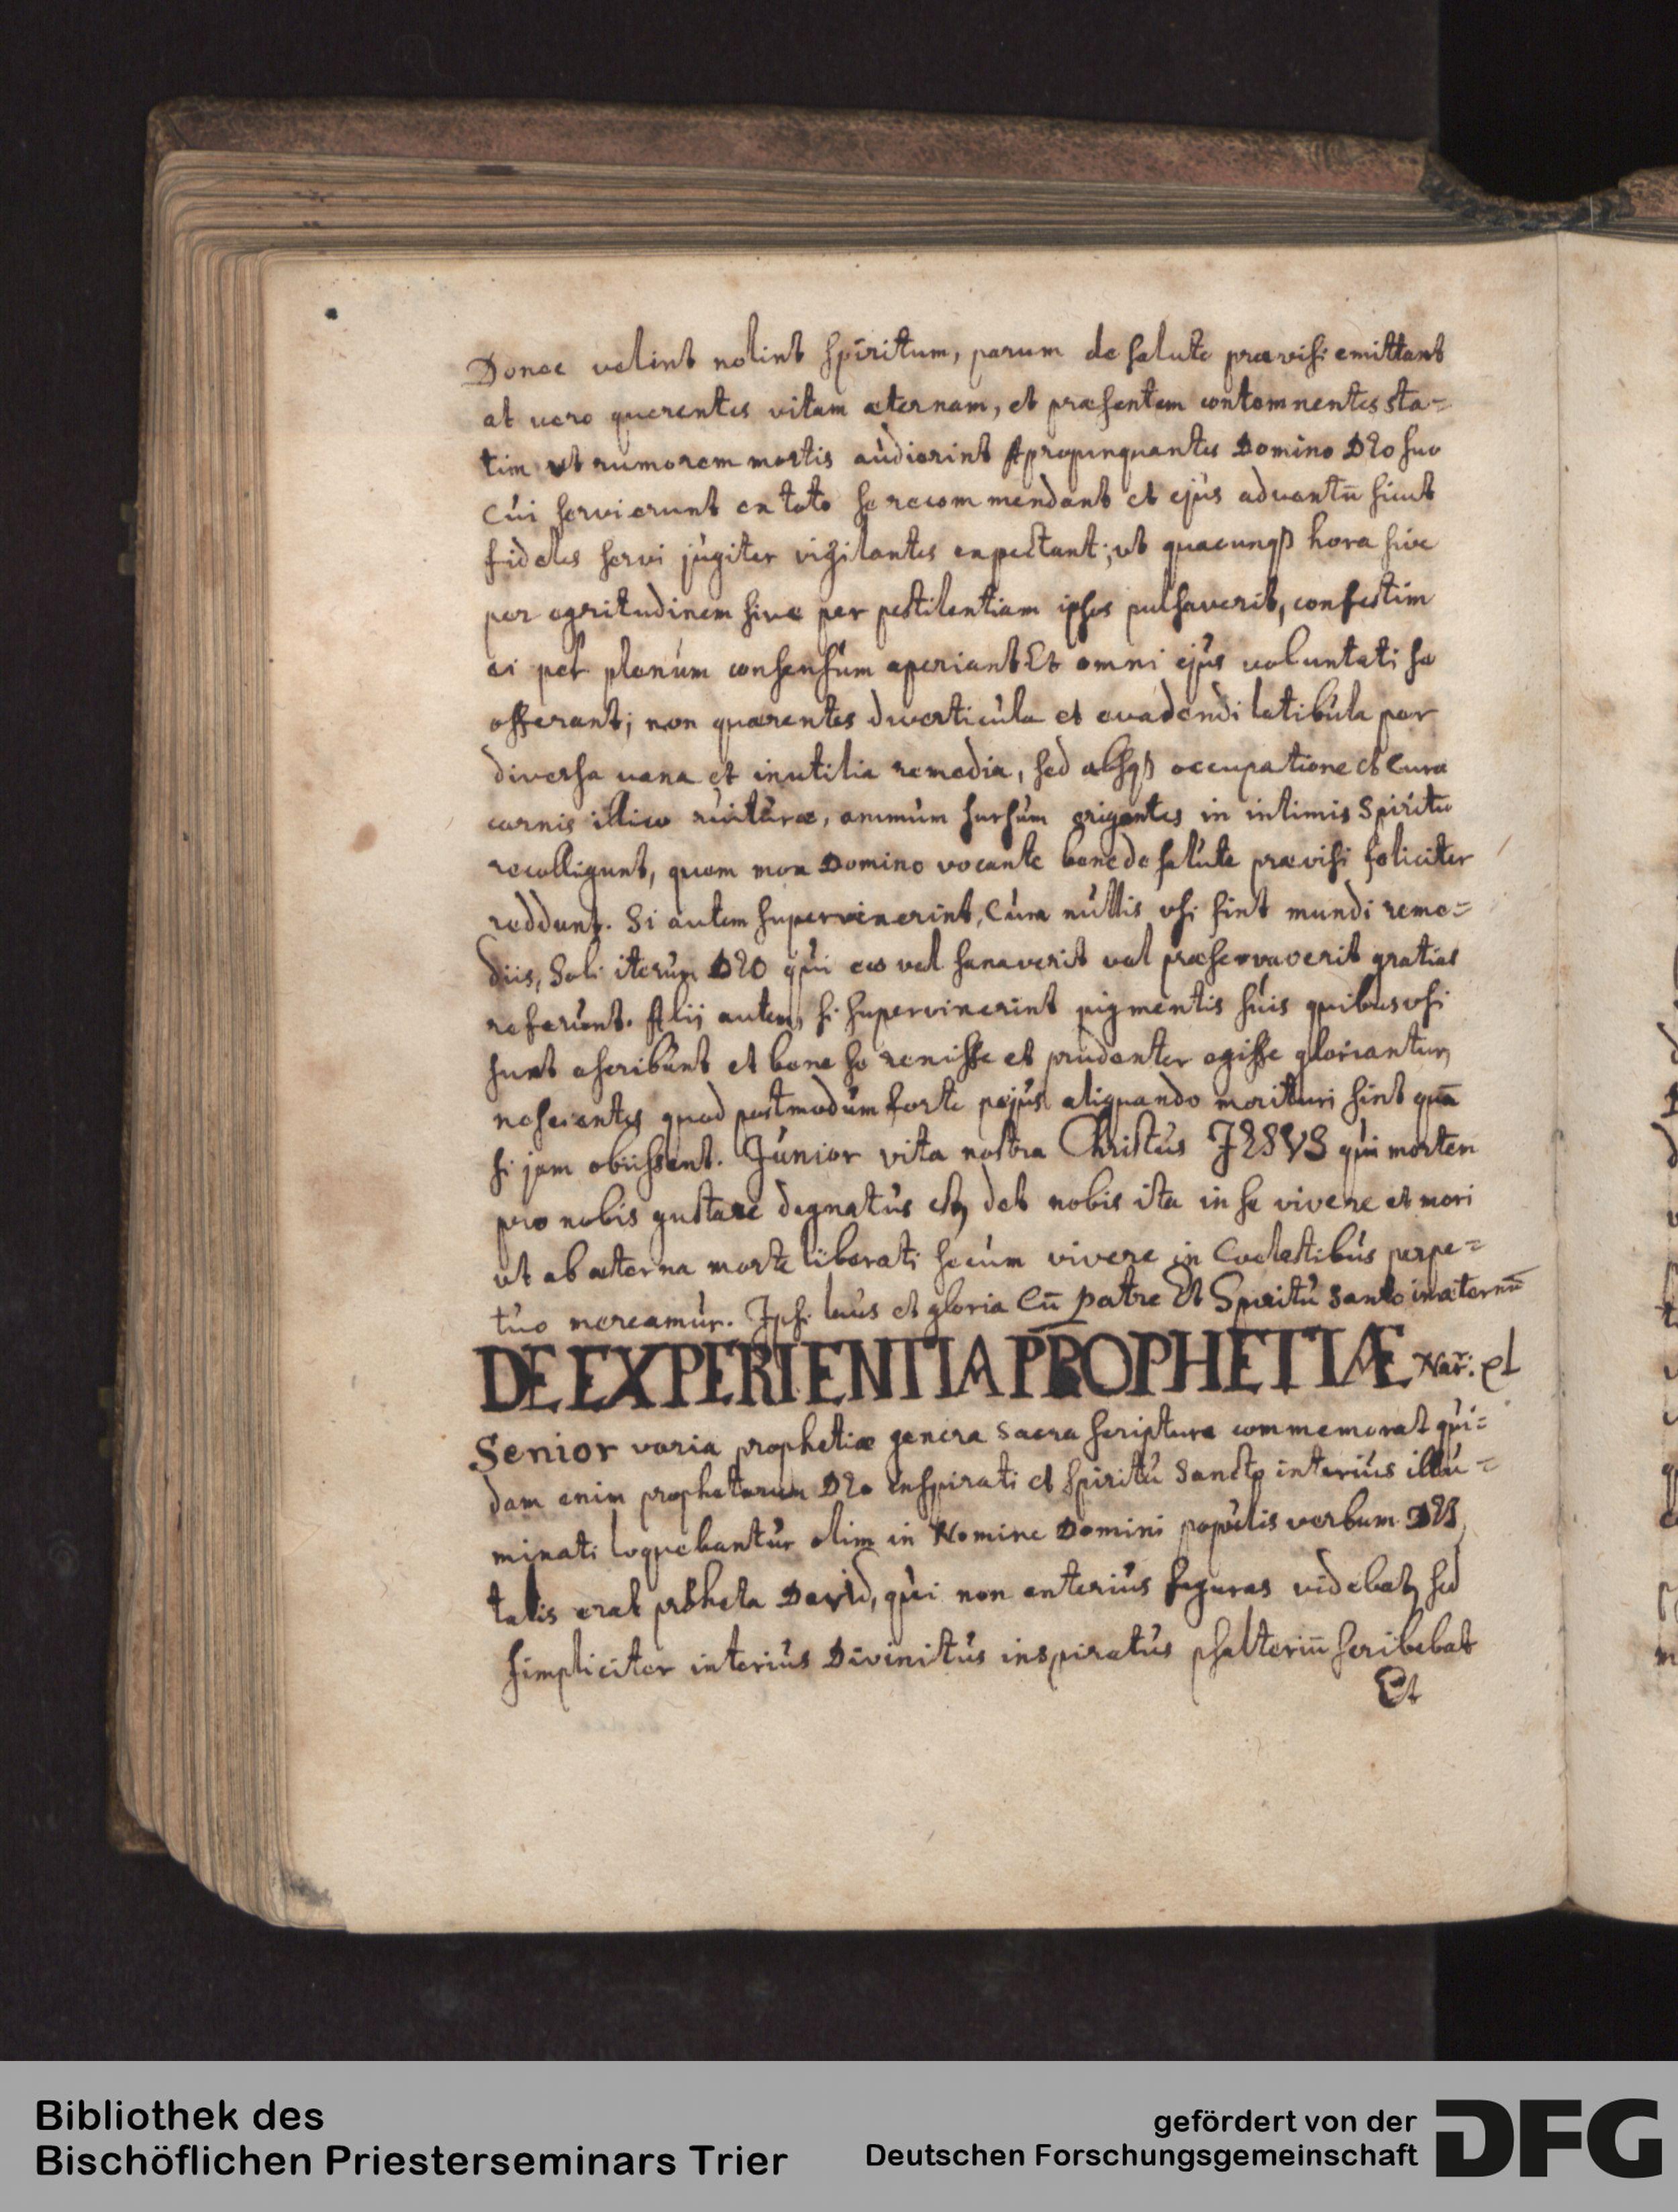 Donec velint nolint spiritum, parum de salute prævisi emittant
at vero querentes vitam æternam, et præsentem contemnentes sta=
tim ut rumorem mortis audierint Apropinquantes Domino DEo suo
cui servierunt ex toto se recommendant et ejus adventū sicut
fideles servi jugiter vigilantes expectant; ut quacunqß hora sive
per egritudinem sive per pestilentiam ipsos pulsaverit, confestim
ei per plenum consensum aperiant Et omni ejus voluntati se
offerant; non quærentes diverticula et evadendi latibula per
diversa vana et inutilia remedia, sed absqß occupatione et Cura
carnis illico ruituræ, animum sursum erigentes in intimis Spiritu
recolligunt, quem mox Domino vocante bene de salute prævisi feliciter
reddunt. Si autem supervixerint, Cum nullis usi sint mundi reme=
diis, Soli iterum DEO qui eos vel sanaverit vel præservaverit gratias
referunt. Alij autem, si supervixerint pigmentis suis quibus usi
sunt ascribunt et bene se xenisse et prudenter egisse gloriantur,
nescientes quod postmodum forte pejus aliquando morituri sint quā
si jam obiissent. Junior vita nostra Christus JESVS qui mortem
pro nobis gustare dignatus est, det nobis ita in se vivere et mori
ut ab æterna morte liberati secum vivere in Coelestibus perpe=
tuo mereamur. Ipsi laus et gloria Cū patre Et Spiritu Santo in æternū
DE EXPERIENTIA PROPHETIÆ Nar: el
Senior varia prophetiæ genera Sacra scriptura commemorat qui=
dam enim prophetarum DEo inspirati et spiritu Sancto interius illu=
minati loquebantur olim in Nomine Domini populis verbum DEI,
talis erat propheta David, qui non exterius figuras videbat, sed
simpliciter interius Divinitus inspiratus psalteriū scribebat
Et
Bibliothek des
Bischöflichen Priesterseminars Trier
gefördert von der
Deutschen Forschungsgemeinschaft
DFG